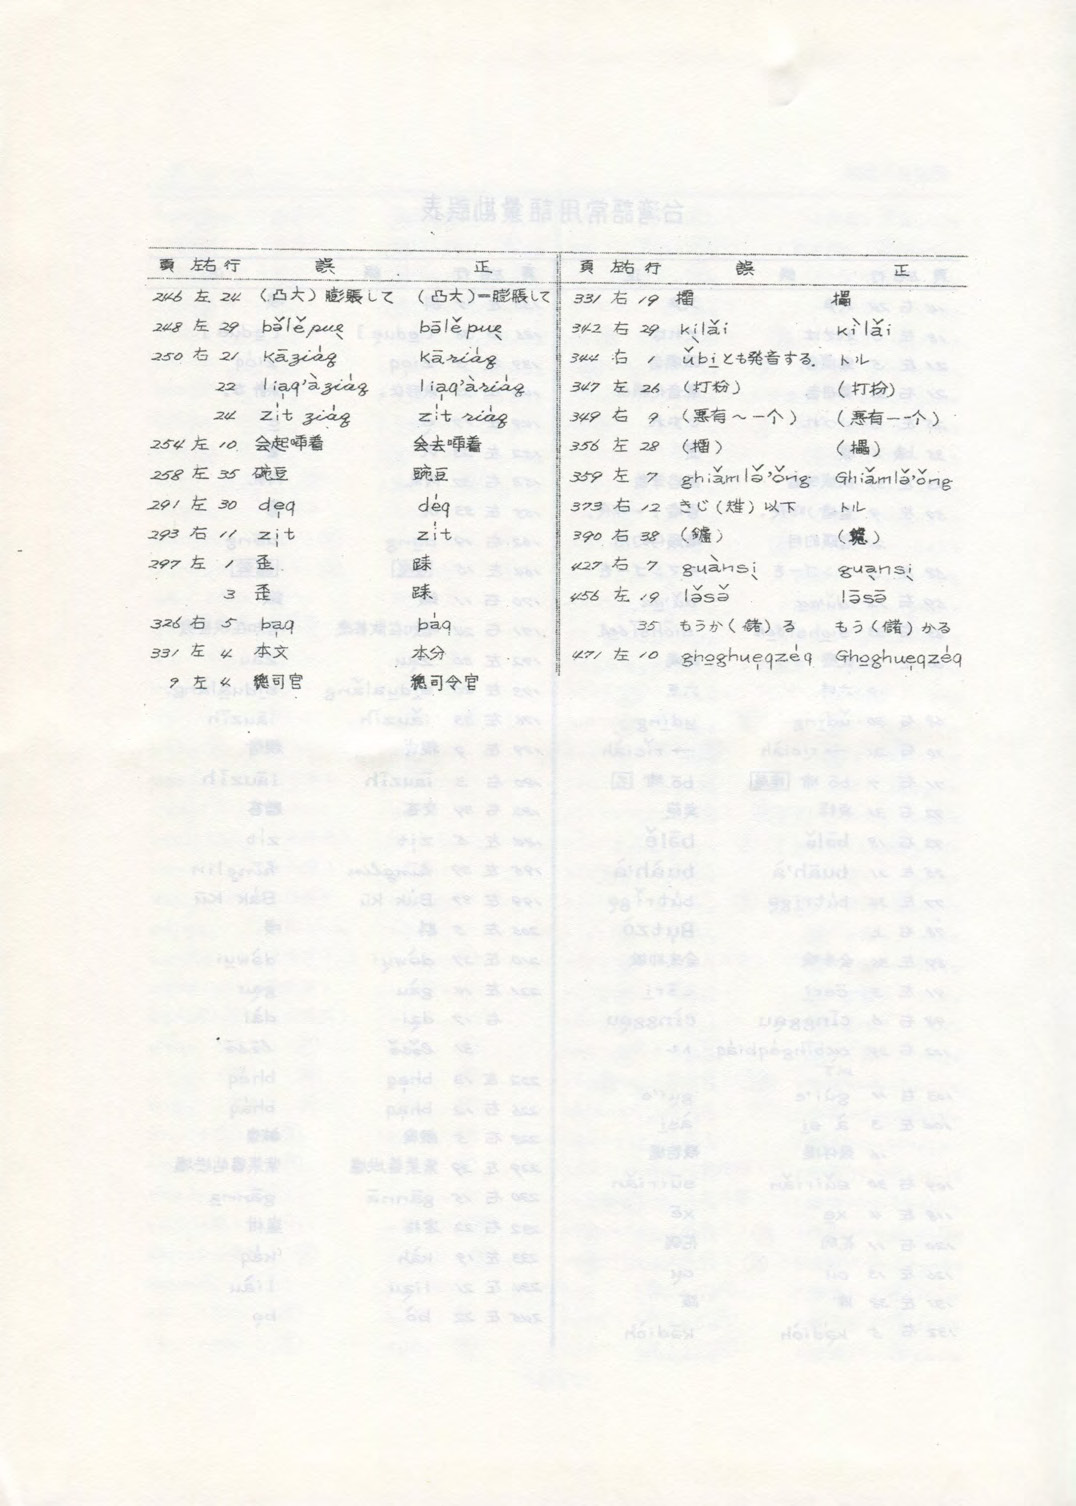 頁 左右 行 誤 正
246 左 24 (凸大)膨脹して (凸大)一膨脹して
248 左 29 bə̌lěpuẹ bə̄lěpuẹ
250 右 21 kāziáq kāriáq
22 liạq'àziáq liạq'àriáq
24 zı̣́t ziáq zı̣́t riáq
254 左 10 会起唓着 会去唓着
258 左 35 碗豆 豌豆
291 左 30 dẹq dẹ́q
293 右 11 zịt zı̣́t
297 左 1 歪
3 歪
326 右 5 bạq bạ́q
331 左 4 本文 本分
9 左 4 總司官 總司令官
頁 左右 行 誤 正
331 右 19
342 右 29 kịlǎi kìlǎi
344 右 1 ǔbiとも発音する. トル
347 左 26 (打粉) (打扮)
349 右 9 (悪有〜一个) (悪有一一个)
356 左 28
359 左 7 ghiǎmlə̌'ǒng Ghiǎmlə̌'ǒng
373 右 12 きじ(雉)以下 トル
390 右 38
427 右 7 guànsị guạnsị
456 左 19 lə̌sə̌ lə̄sə̄
35 もうか(儲)る もう(儲)かる
471 左 10 ghoghuẹqzẹ́q Ghoghuẹqzẹ́q